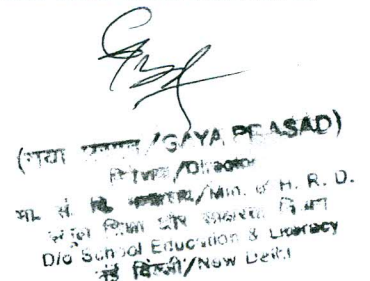 (गया प्रसाद/GAYA PRASAD)
/Director
मा. सं. वि. /Min. of H. R. D.
स्कूल शिक्षा और साक्षरता विभाग
D/o School Education & Literacy
नई दिल्ली/New Delhi